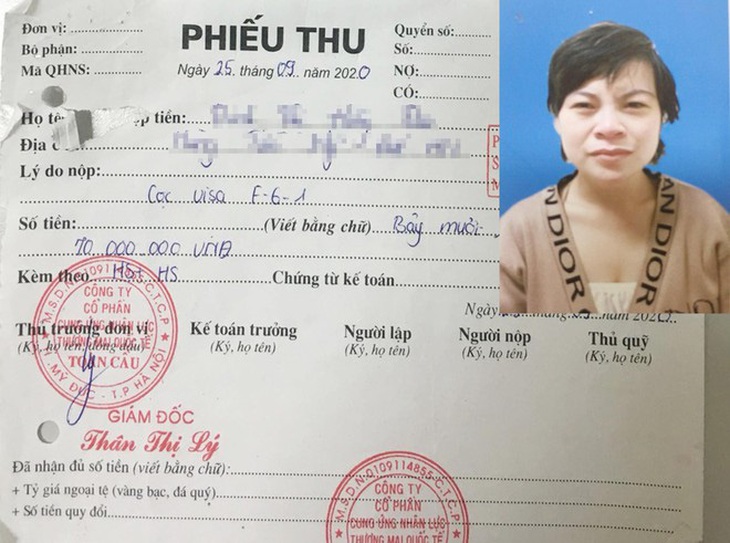 Đơn vị:
Bộ phận:
Mã QHNS:
PHIẾU THU
Ngày 25 tháng 09 năm 2020
Quyển số:
Số:
NỢ:
CÓ:
Họ tê
p tiền:
Địa c
Lý do nộp:
Cọc visa F-6-1
Số tiền: (Viết bằng chữ) Bảy mươi
70 000 000 VNĐ
Kèm theo HS Chứng từ kế toán.
Ngày tháng năm 202
Thủ trưởng đơn vị
(Ký, họ tên, đóng dấu)
Kế toán trưởng
(Ký, họ tên)
Người lập
(Ký, họ tên)
Người nộp
(Ký, họ tên)
Thủ quỹ
(Ký, họ tên)
M.S.D.N:0109114855-C.T.C.P
CÔNG TY
CỔ PHẦN
CUNG ỨNG NHÂN LỰC
THƯƠNG MẠI QUỐC TẾ
TOÀN CẦU
MỸ ĐỨC - T.P HÀ NỘI
GIÁM ĐỐC
Thân Thị Lý
Đã nhận đủ số tiền (viết bằng chữ):
+ Tỷ giá ngoại tệ (vàng bạc, đá quý)
+ Số tiền quy đổi
M.S.D.N:0109114855-C.T.C.P
CÔNG TY
CỔ PHẦN
CUNG ỨNG NHÂN LỰC
THƯƠNG MẠI QUỐC TẾ
AN DIOR
DIOR